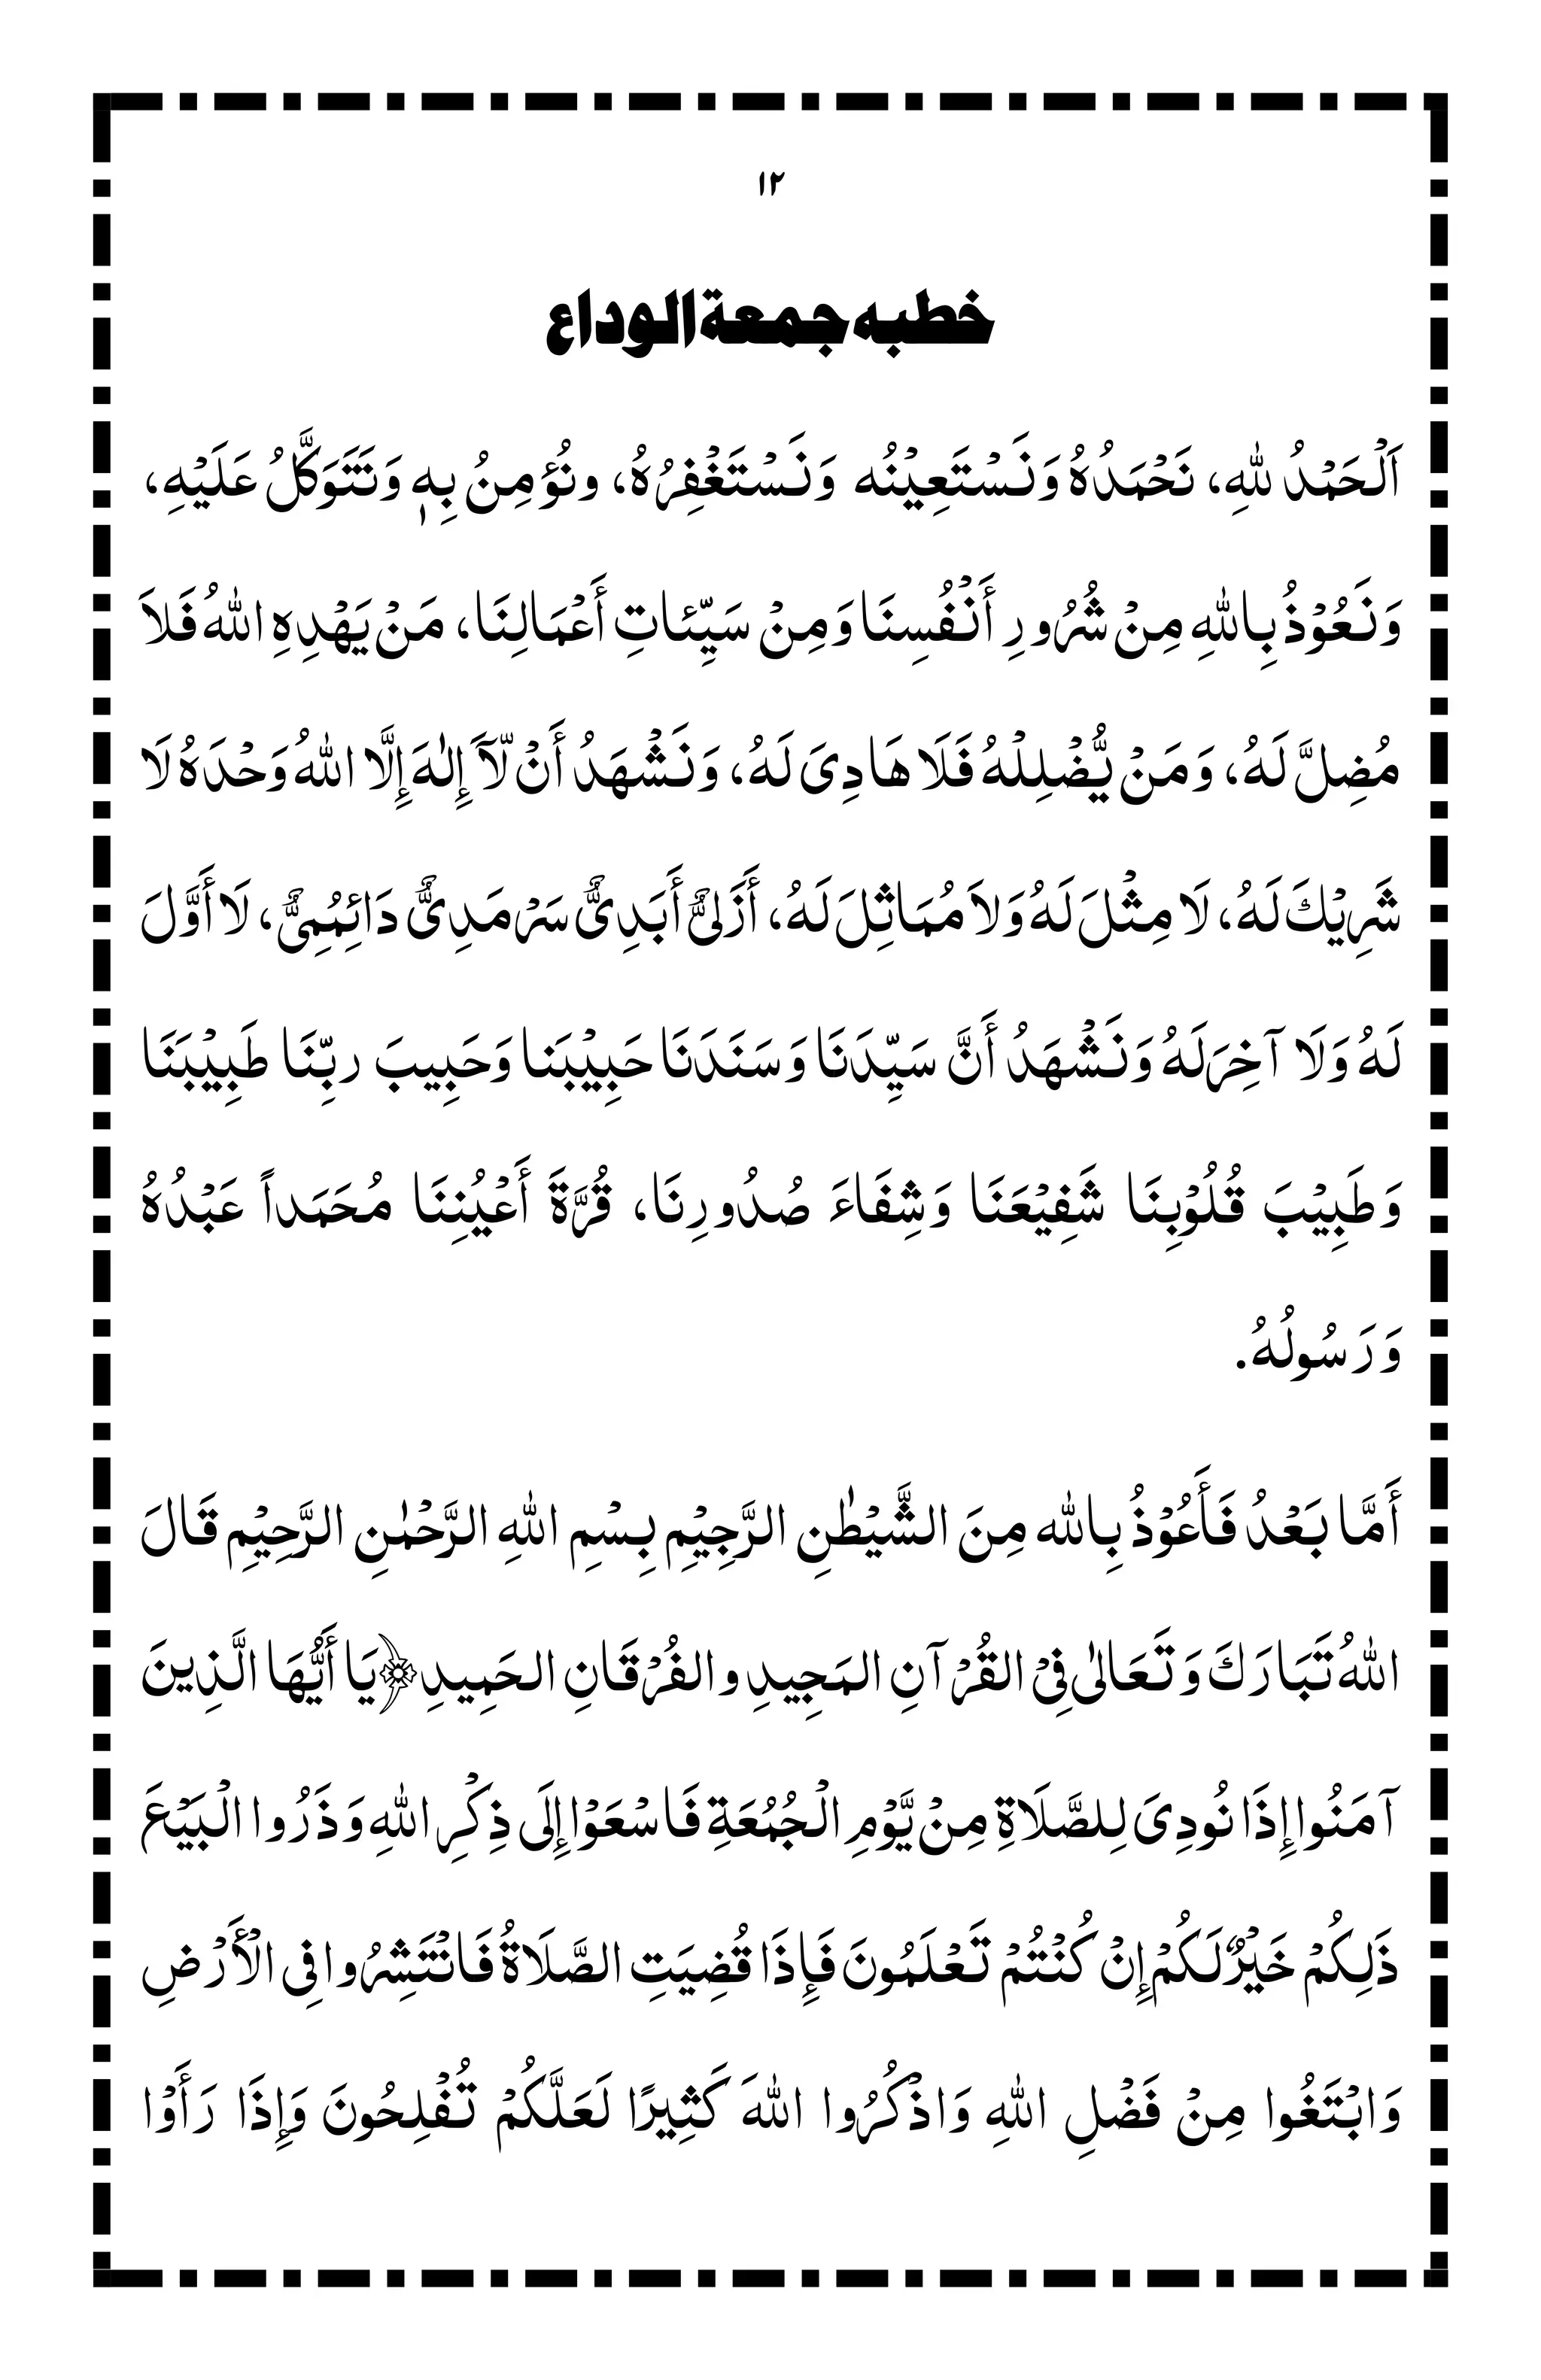 ١٢
خطبه جمعة الوداع
اَلْحَمْدُ للهِ، نَحْمَدُهُ وَنَسْتَعِيْنُه وَنَسْتَغْفِرُهُ، ونُؤمِنُ بِهٖ وَنَتَوَكَّلُ عَلَيْهِ،
وَنَعُوْذُ بِاللهِ مِنْ شُرُورِ أَنْفُسِنَا وَمِنْ سَيِّئاتِ أَعْمَالِنَا، مَنْ يَهْدِهِ اللهُ فَلاَ
مُضِلَّ لَهُ، وَمَنْ يُّضْلِلْهُ فَلَا هَادِىَ لَهُ، وَنَشْهَدُ أَنْ لّآ إِلٰهَ إِلَّا اللهُ وَحْدَهُ لَا
شَرِيْكَ لَهُ، لَا مِثْلَ لَهُ وَلاَ مُمَاثِلَ لَهُ، أَزَلىٌّ أَبَدِىٌّ سَرْمَدِىٌّ دَائِمُمِىٌّ، لَا أَوَّلَ
لَهُ وَلَا آخِرَلَهُ وَنَشْهَدُ أَنَّ سَيِّدَنَا وَسَنَدَنَا حَبِيْبَنا وَحَبِيبَ ربِّنَا طَبِيْبَنَا
وَطَبِيْبَ قُلُوْبِنَا شَفِيْعَنَا وَشِفَاءَ صُدُورِنَا، قُرَّةَ أَعْيُنِنَا مُحَمَداً عَبْدُهُ
وَرَسُولُهُ.
أَمَّا بَعْدُ فَأَعُوْذُ بِالله مِنَ الشَّيْطٰنِ الرَّجِيْمِ بِسْمِ اللهِ الرَّحْمٰنِ الرَّحِيْمِ قَالَ
اللهُ تَبَارَكَ وَتَعَالىٰ فِىْ القُرْآنِ المَجِيدِ والفُرْقَانِ الحَمِيدِ ﴿يَا أَيُّهَا الَّذِينَ
آمَنُوا إِذَا نُودِىَ لِلصَّلَاةِ مِنْ يَّوْمِ الْجُمُعَةِ فَاسْعَوْا إِلَى ذِكْرِ اللهِ وَذَرُوا الْبَيْعَ
ذَلِكُمْ خَيْرٌ لَكُمْ إِنْ كُنْتُمْ تَعْلَمُونَ فَإِذَا قُضِيَتِ الصَّلَاةُ فَانْتَشِرُوا فِى الْأَرْضِ
وَابْتَغُوا مِنْ فَضْلِ اللهِ وَاذْكُرُوا اللهَ كَثِيرًا لَعَلَّكُمْ تُفْلِحُونَ وَإِذَا رَأَوْا